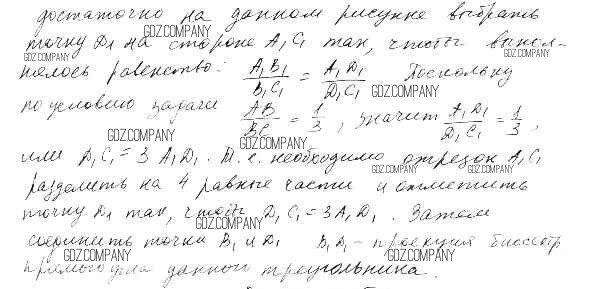 достаточно на данном рисунке выбрать
точку D₁ на стороне A₁C₁ так, чтобы выпол-
нялось равенство: A₁B₁/B₁C₁ = A₁D₁/D₁C₁. Поскольку
по условию задачи AB/BC = 1/3, значит A₁D₁/D₁C₁ = 1/3,
или D₁C₁ = 3A₁D₁. Т.е. необходимо отрезок A₁C₁
разделить на 4 равные части и отметить
точку D₁ так, чтобы D₁C₁ = 3A₁D₁. Затем
соединить точки B₁ и D₁ B₁D₁ - проекция биссектр
прямого угла данного треугольника.
GDZ.COMPANY
GDZ.COMPANY
GDZ.COMPANY
GDZ.COMPANY
GDZ.COMPANY
GDZ.COMPANY
GDZ.COMPANY
GDZ.COMPANY
GDZ.COMPANY
GDZ.COMPANY
GDZ.COMPANY
GDZ.COMPANY